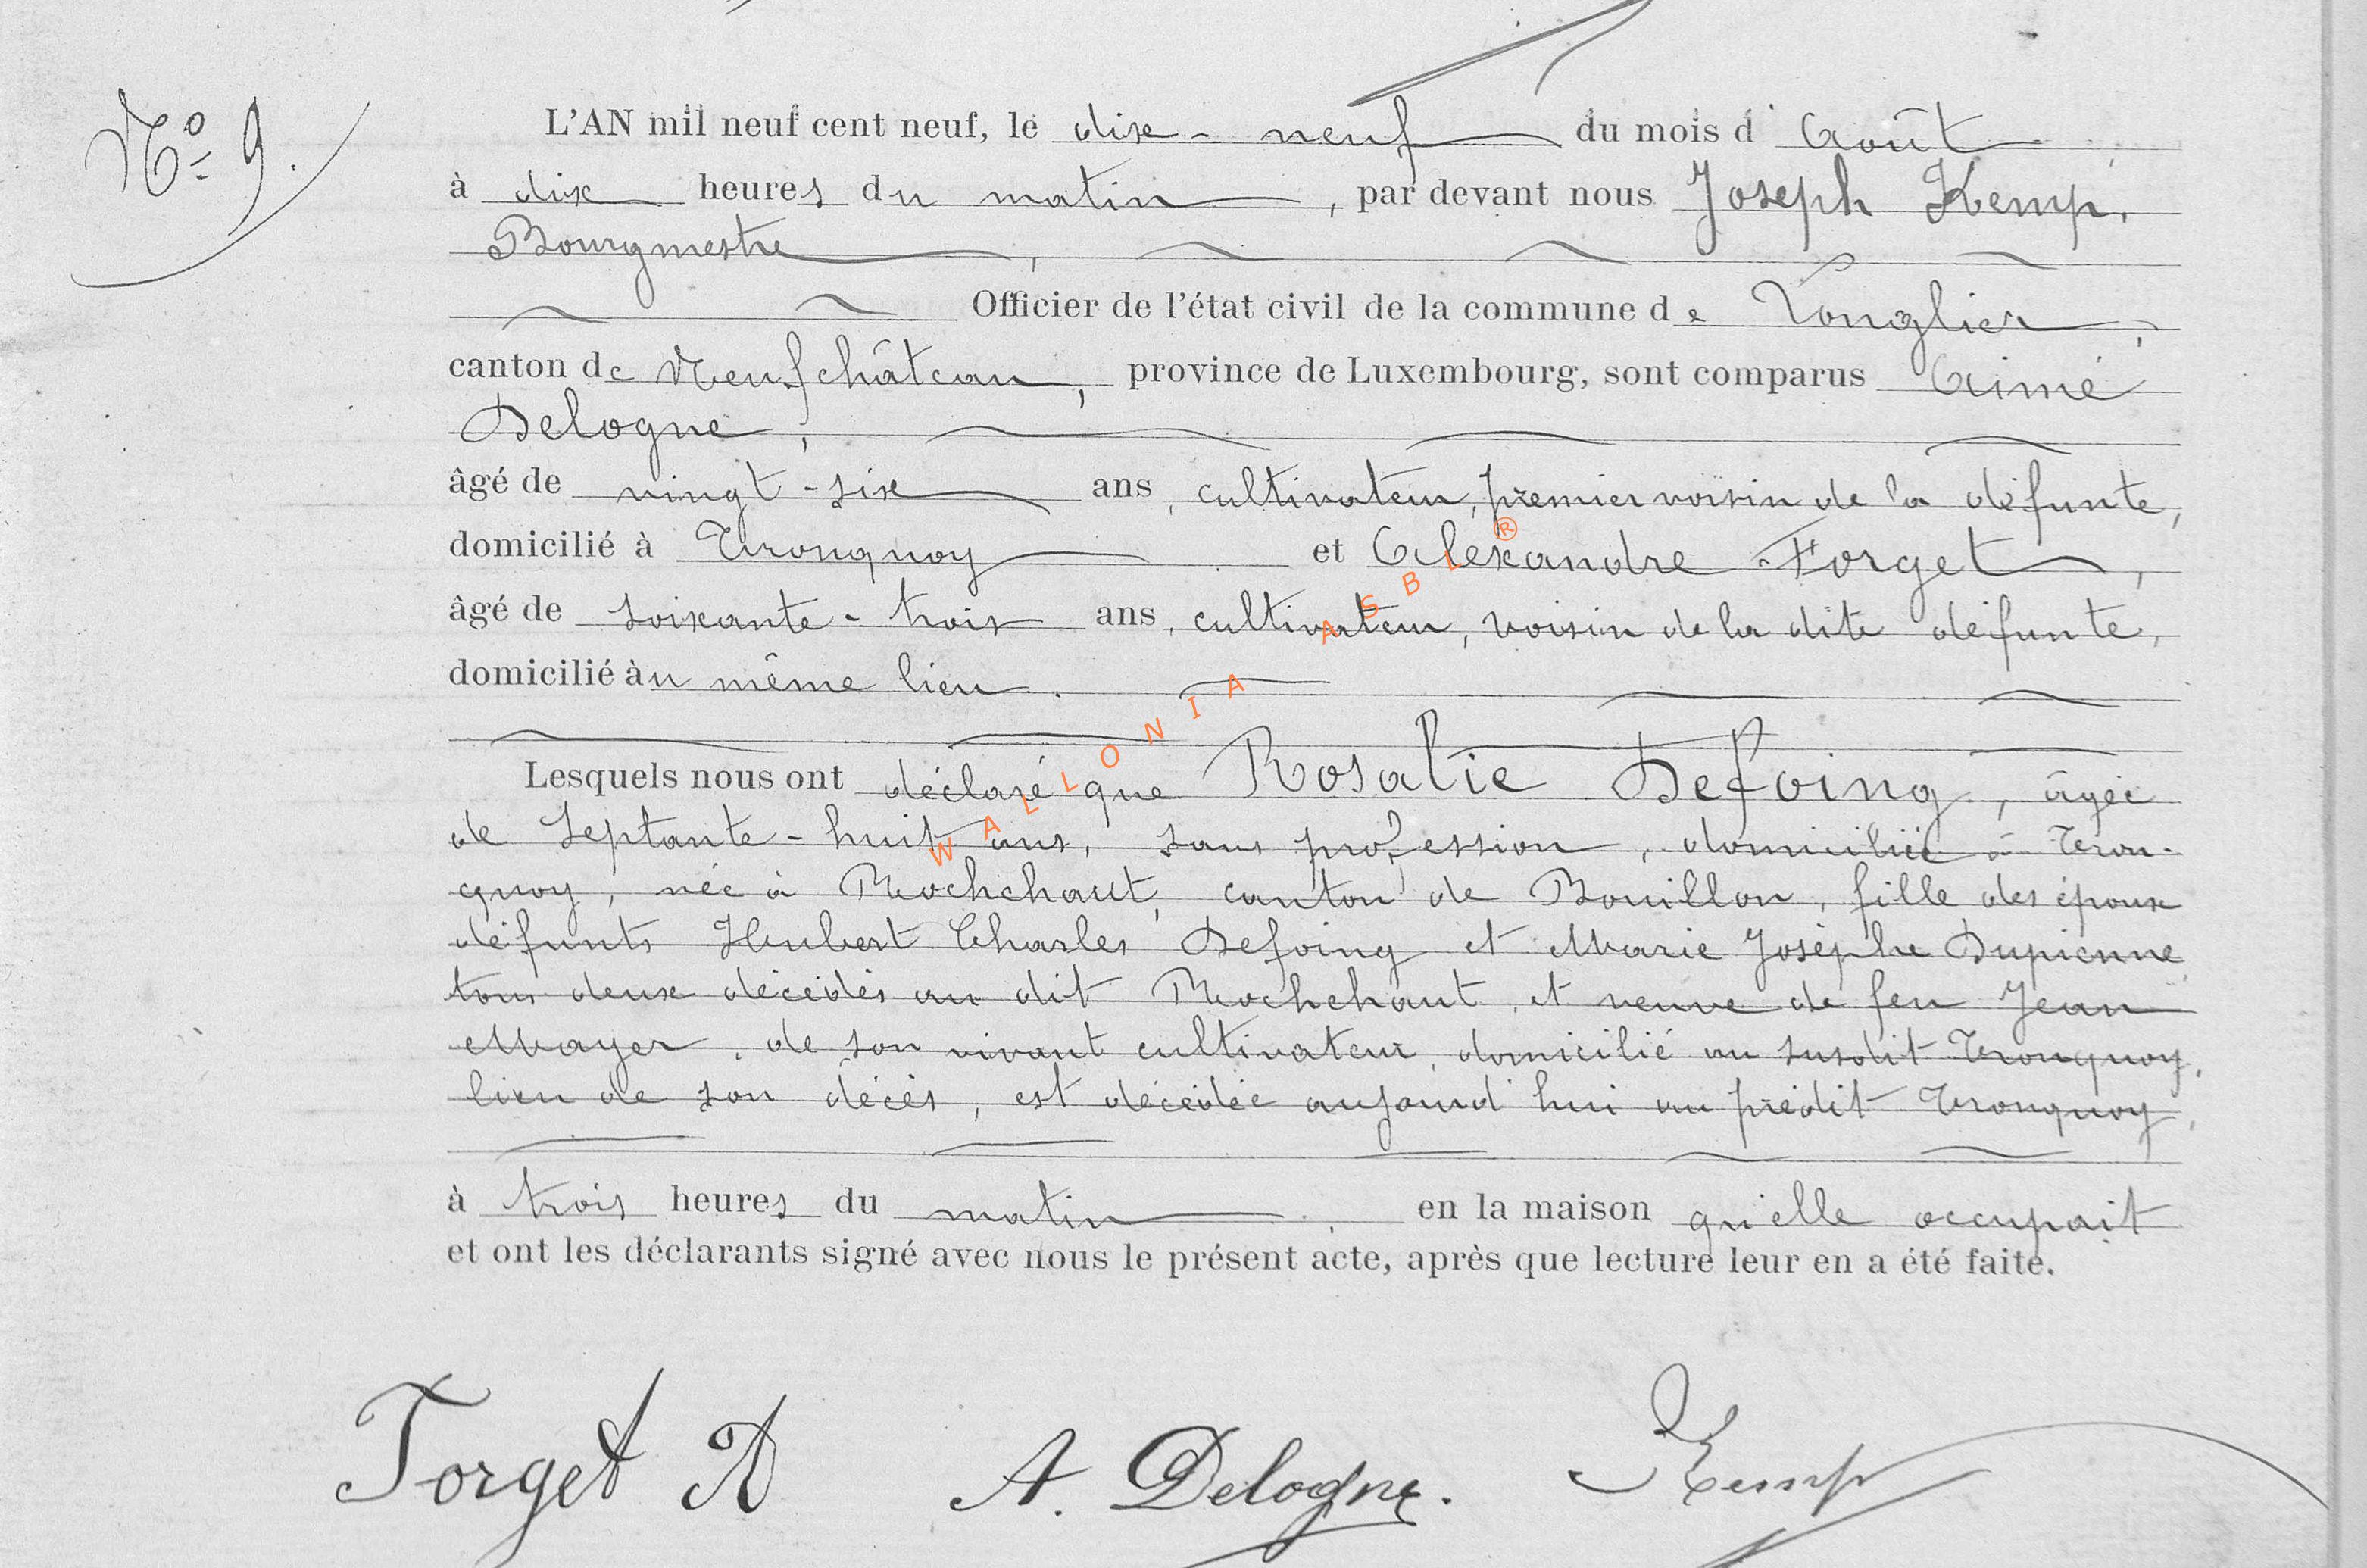 Nº 9.
L'AN mil neuf cent neuf, le dix-neuf du mois d'Août
à dix heures du matin, par devant nous Joseph Kemp,
Bourgmestre,
Officier de l'état civil de la commune de Longlier,
canton de Neufchâteau, province de Luxembourg, sont comparus Aimé
Delogne,
âgé de vingt-six ans, cultivateur, premier voisin de la défunte,
domicilié à Tronquoy et Alexandre Forget,
âgé de soixante-trois ans, cultivateur, voisin de la dite défunte,
domicilié au même lieu.
Lesquels nous ont déclaré que Rosalie Defoing, âgée
de septante-huit ans, sans profession, domiciliée à Tron-
quoy, née à Rochehaut, canton de Bouillon, fille des époux
défunts Hubert Charles Defoing et Marie Josèphe Dupienne
tous deux décédés au dit Rochehaut, et veuve de feu Jean
Mayer, de son vivant cultivateur, domicilié au susdit Tronquoy,
lieu de son décès, est décédée aujourd'hui au prédit Tronquoy,
à trois heures du matin, en la maison qu'elle occupait
et ont les déclarants signé avec nous le présent acte, après que lecture leur en a été faite.
Forget A A. Delogne. Kemp
WALLONIA ASBL ®